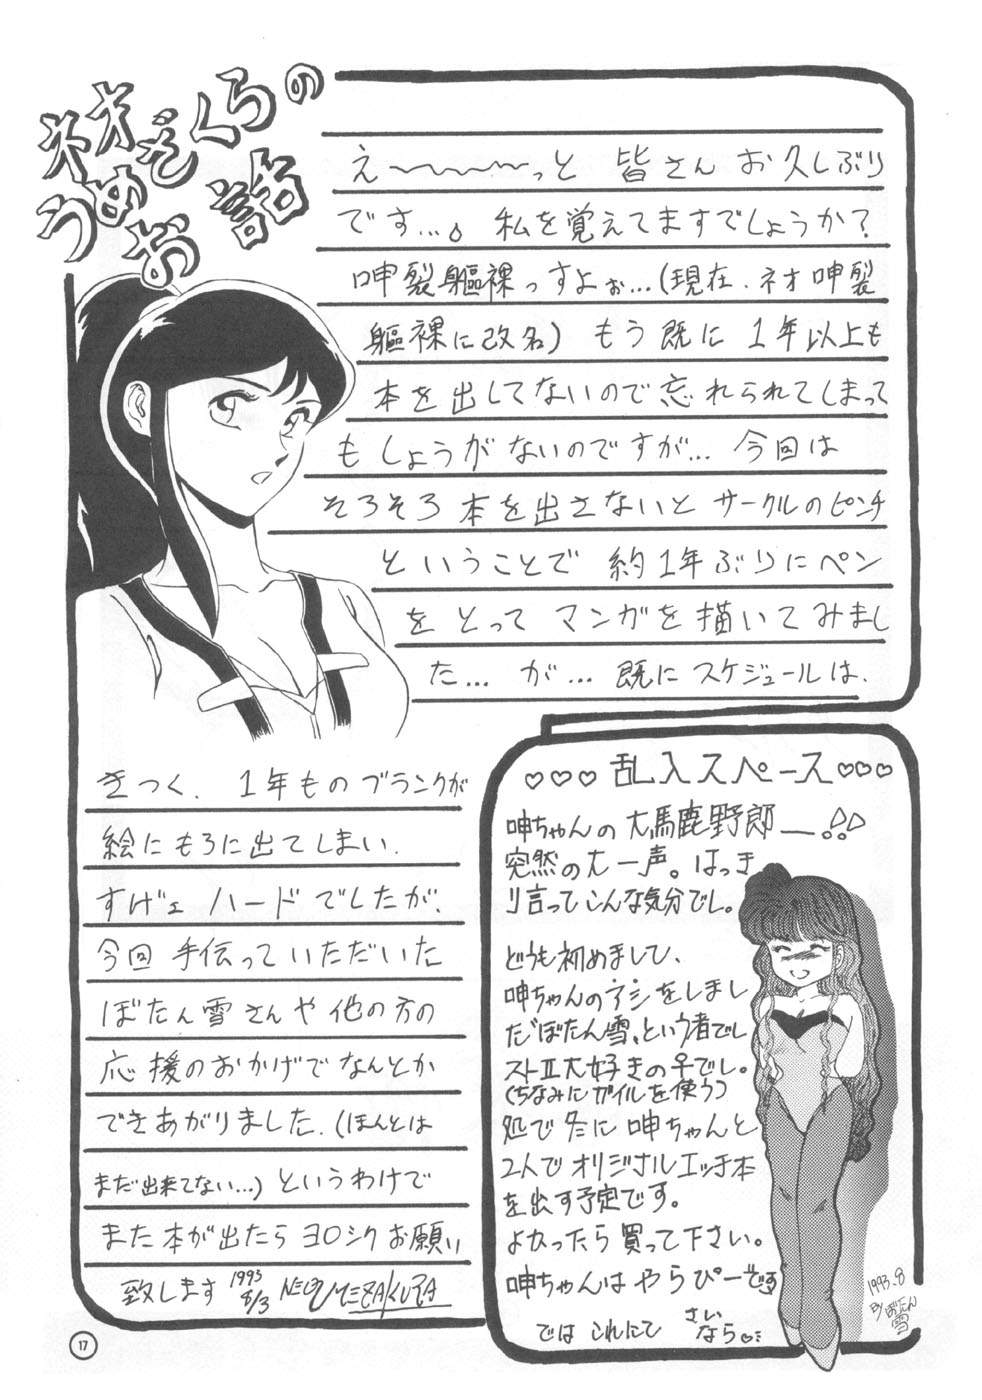 ネオ
うめざくらの
お話
え〜〜〜〜っと 皆さん お久しぶり
です…。私を覚えてますでしょうか?
呻裂軀裸っすよぉ…(現在、ネオ呻裂
軀裸に改名) もう既に 1年以上も
本を出してないので忘れられてしまって
もしょうがないのですが… 今回は
そろそろ本を出さないとサークルのピンチ
ということで 約1年ぶりにペン
をとって マンガを描いてみまし
た… が… 既にスケジュールは、
きつく、1年ものブランクが
絵にもろに出てしまい、
すげェ ハードでしたが、
今回 手伝っていただいた
ぼたん雪さんや他の方の
応援のおかげでなんとか
できあがりました、(ほんとは
まだ出来てない…)というわけで
また本が出たらヨロシクお願い
致します 1993 8/3 NEO UMEZAKURA
♡♡♡乱入スペース♡♡♡
呻ちゃんの大馬鹿野郎―!!
突然の大一声。はっき
り言ってこんな気分でし。
どうも初めまして、
呻ちゃんのアシをしまし
た゛ぼたん雪、という者でし
ストⅡ大好きの♀でし。
(ちなみにガイルを使う)
処で冬に 呻ちゃんと
2人でオリジナルエッチ本
を出す予定です。
よかったら買って下さい。
呻ちゃんは やらぴーです
では これにて さいなら♡
1993.8
By ぼたん雪
17